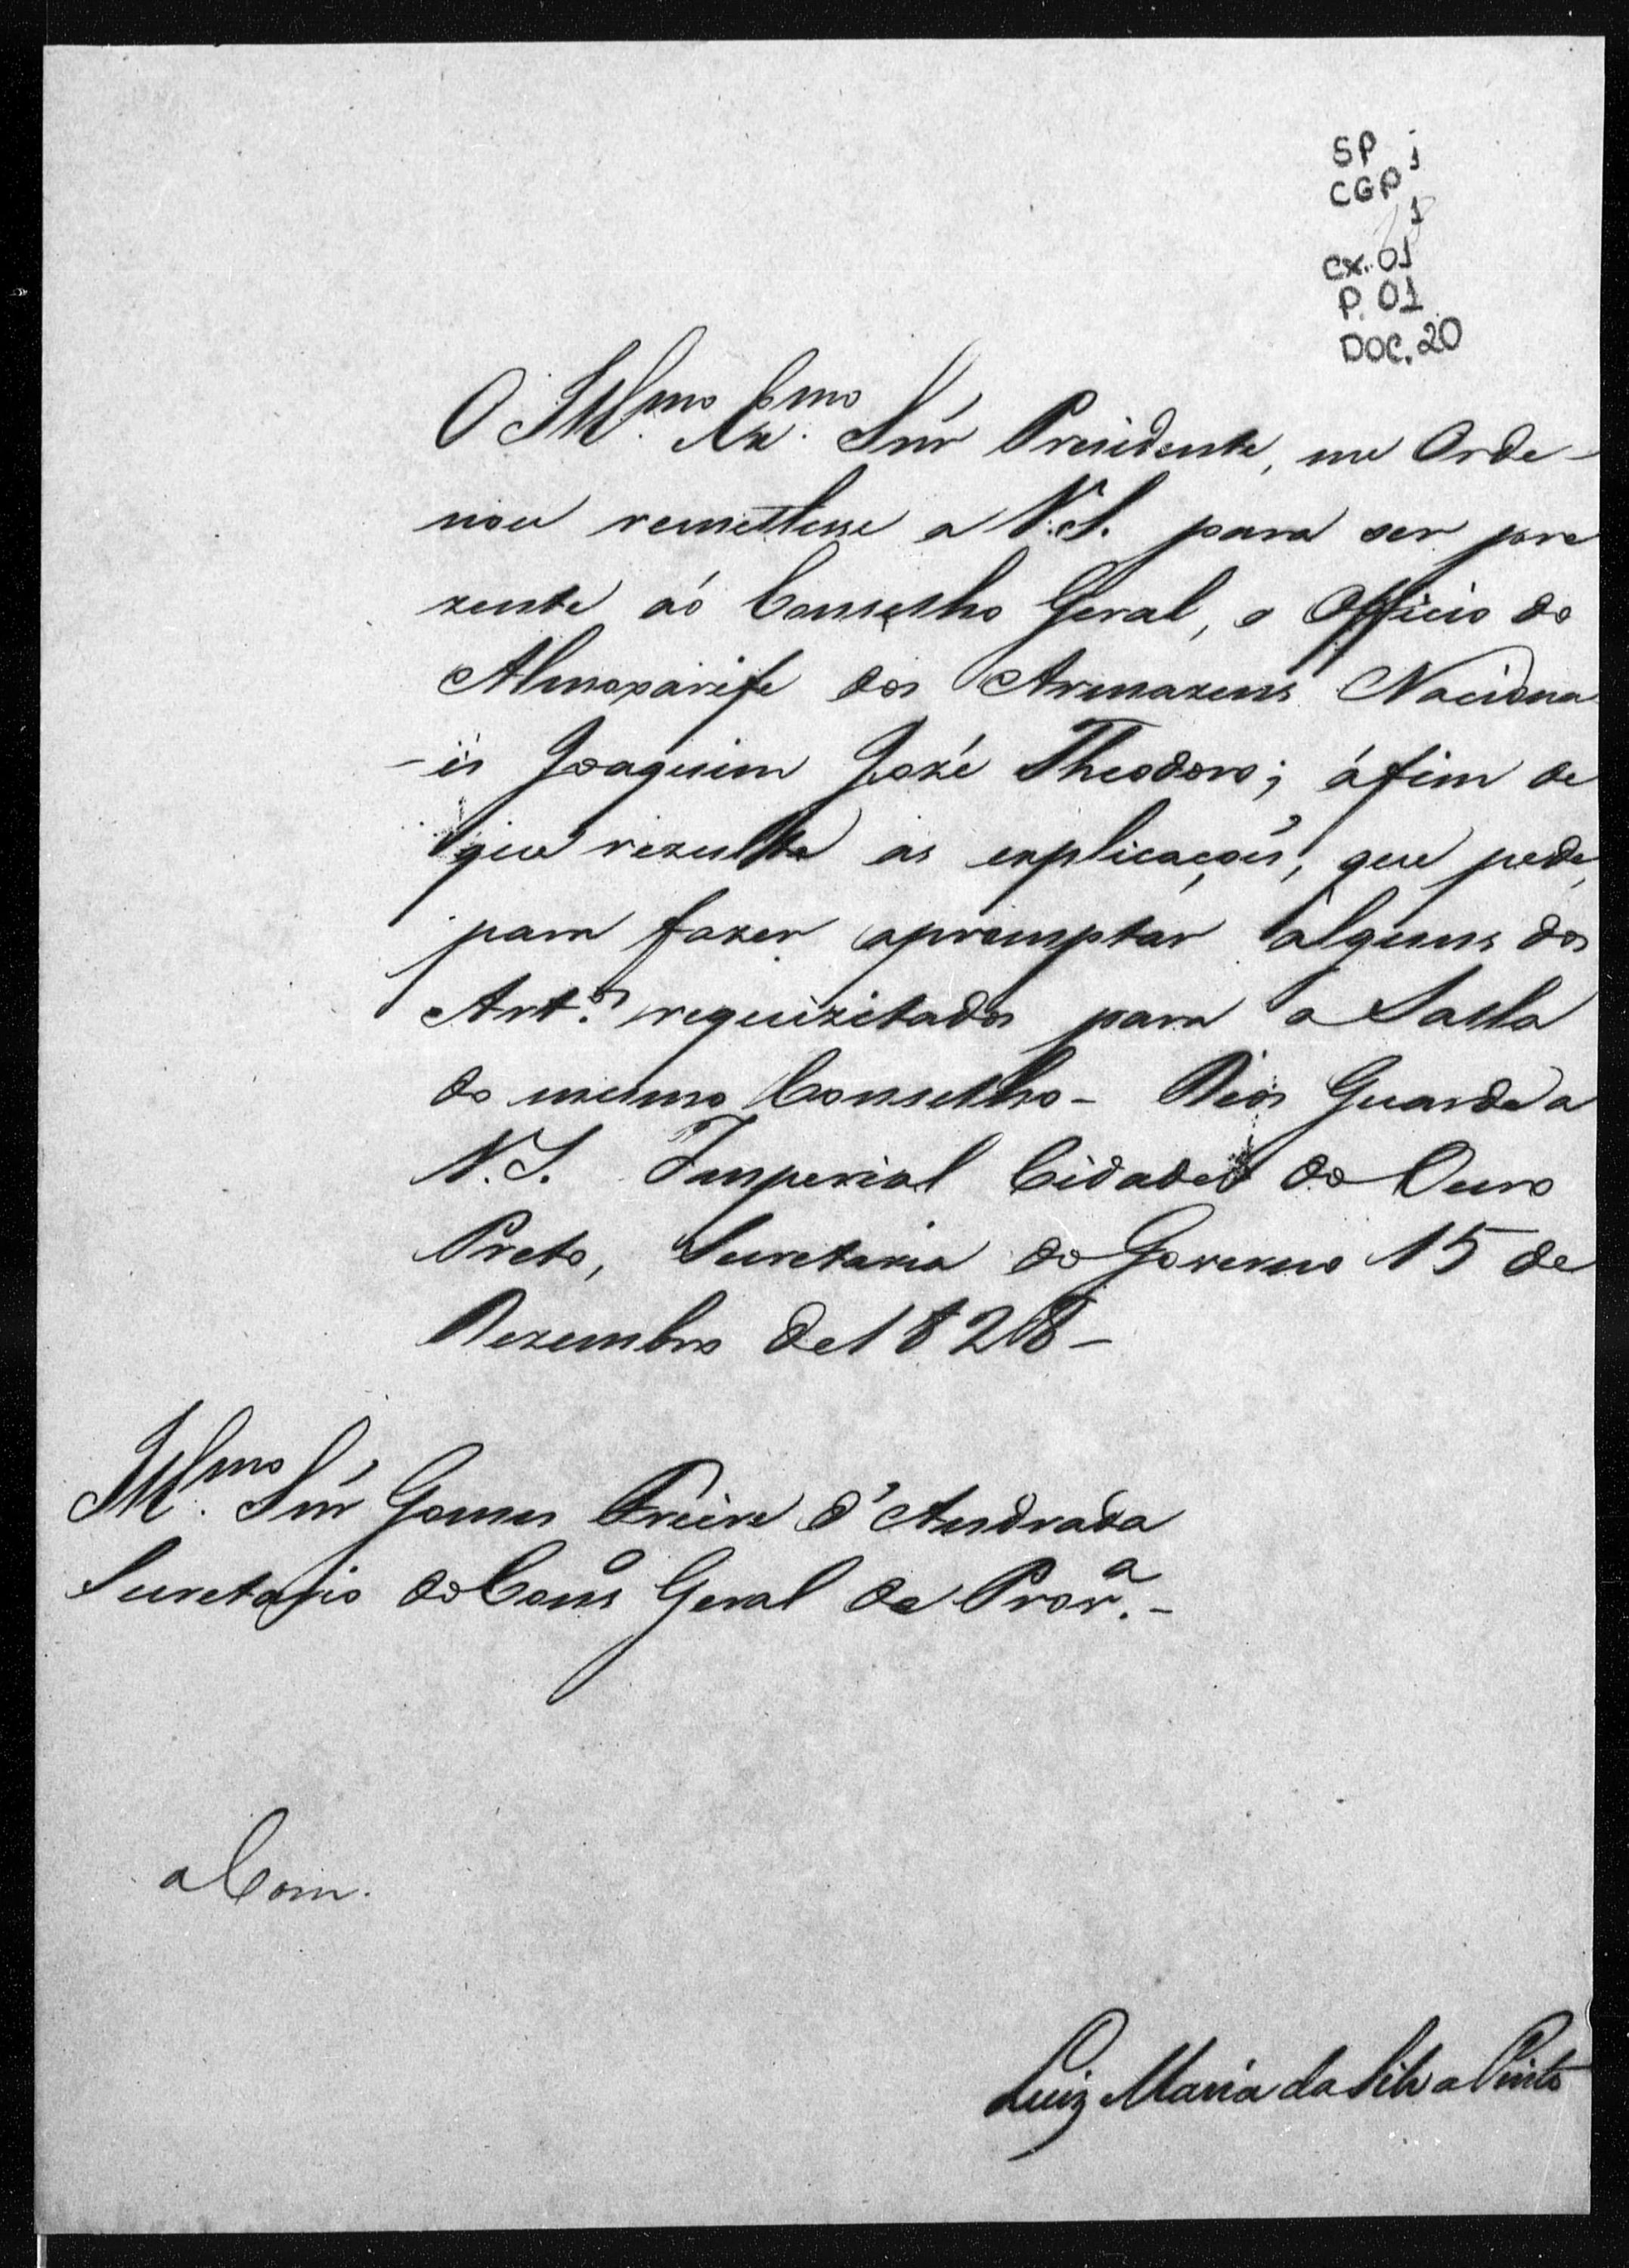 SP 1
CGP 1
cx. 01
P. 01
DOC. 20
O Ill.mo Ex.mo Snr̃ Prezidente, me Orde-
nou remettesse a V.S. para ser pre
zente aó Conselho Geral, o Officio do
Almoxarife dos Armazens Naciona
-is Joaquim Jozé Theodoro; áfim de
que rezulte as explicações, que pede,
para fazer apromptar alguns dos
Art.os requizitados para a Salla
do mesmo Conselho - Deos Guarde a
V.S. Imperial Cidade do Ouro
Preto, Secretaria do Governo 15 de
Dezembro de 1828 -
Ill.mo Snr̃ Gomes Freire d'Andrada
Secretario do Cons.o Geral da Prov.a -
a Com.
Luiz Maria da Silva Pinto